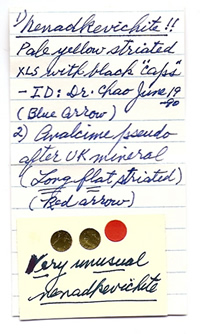 1) Nenadkevichite!!
Pale yellow striated
XLS with black "caps"
- ID: Dr. Chao June 19
-90
(Blue arrow)
2) Analcime pseudo
after UK mineral
(Long flat, striated)
(Red arrow)
Very unusual
nenadkevichite